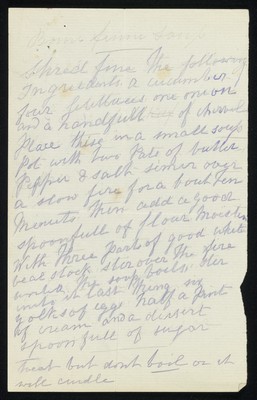 Bonne Femme Soup
Shred fine the following
Ingredients a cucumber
four lettuces one onion
and a handfull of chervil
Place these in a small soup
Pot with two Pats of butter
Pepper & salt simer over
a slow fire for a bout ten
Minuits then add a good
spoonfull of flour moisten
With three Pints of good white
veal stock stir over the fire
until the soup boils. Stir
into it last thing six
yolks of eggs half a pint
of cream and a dissert
spoon full of sugar
heat but dont boil or it
will curdle